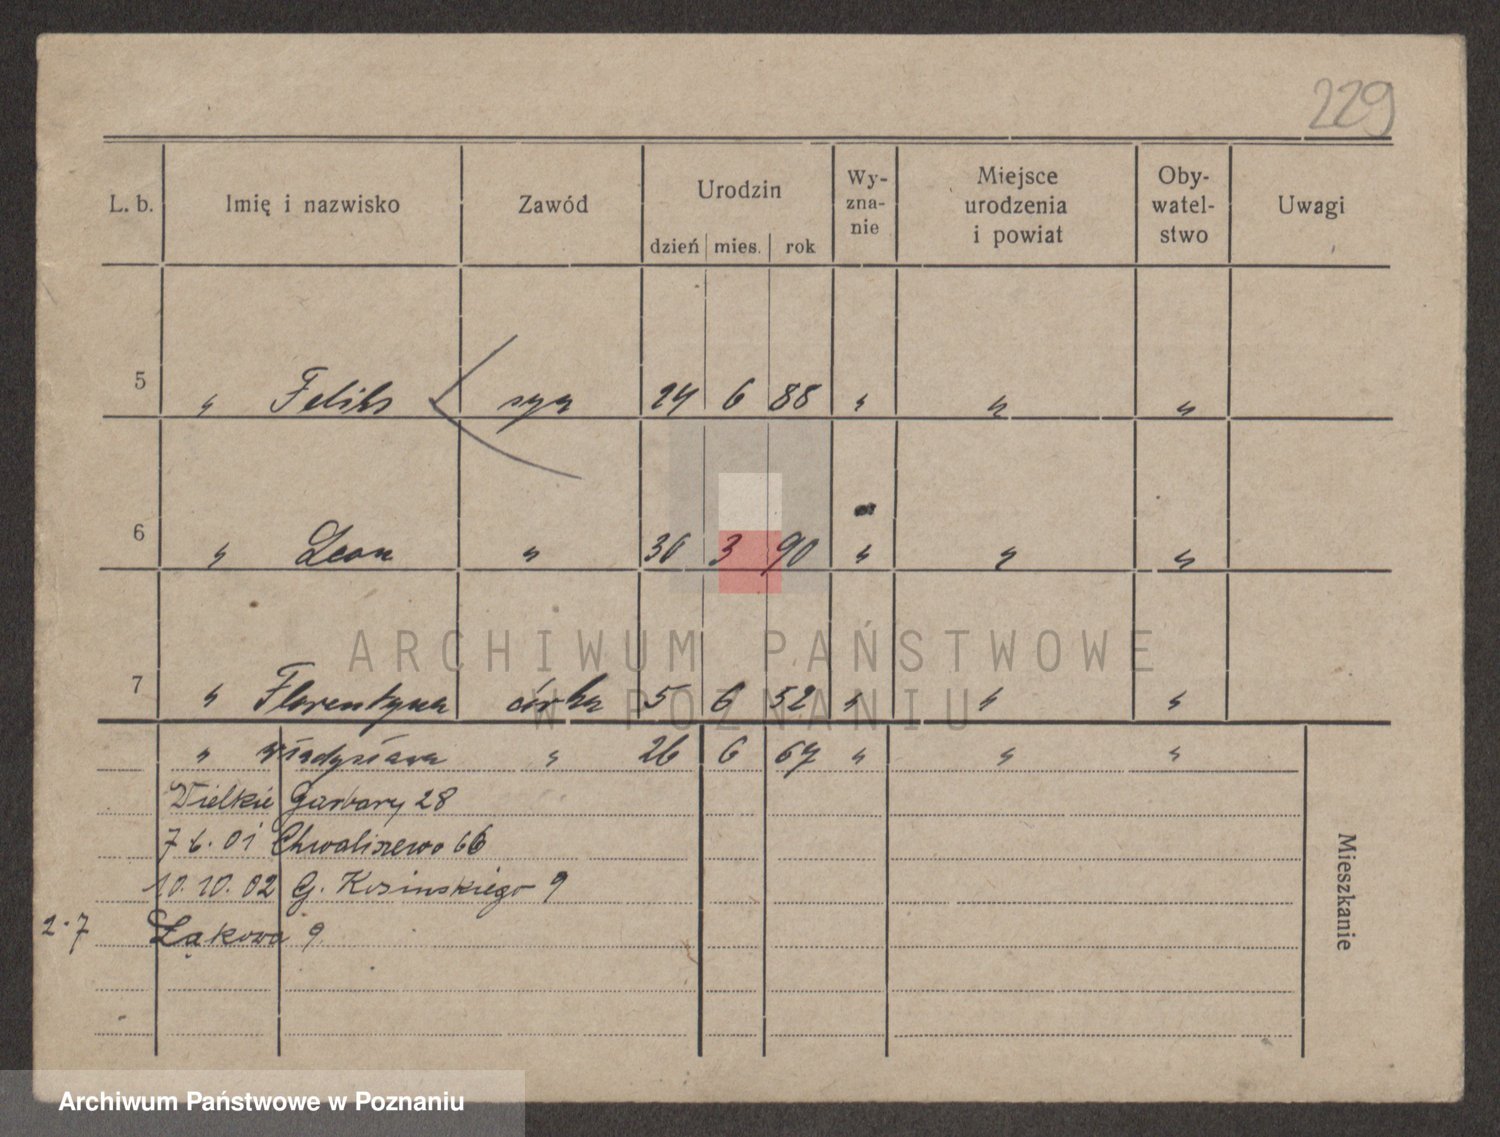 229
L. b. Imię i nazwisko Zawód Urodzin Wy-zna-nie Miejsce urodzenia i powiat Oby-watel-stwo Uwagi
dzień mies. rok
5 " Feliks syn 24 6 88 " " "
6 " Leon " 30 3 90 " " "
ARCHIWUM PAŃSTWOWE
W POZNANIU
7 " Florentyna córka 5 6 52 " " "
" Władysława " 26 6 67 " " "
Wielkie Garbary 28
7 6. 01 Chwaliszewo 66
10. 10. 02 G. Kosinskiego 9
2-7 Łąkowa 9.
Mieszkanie
Archiwum Państwowe w Poznaniu